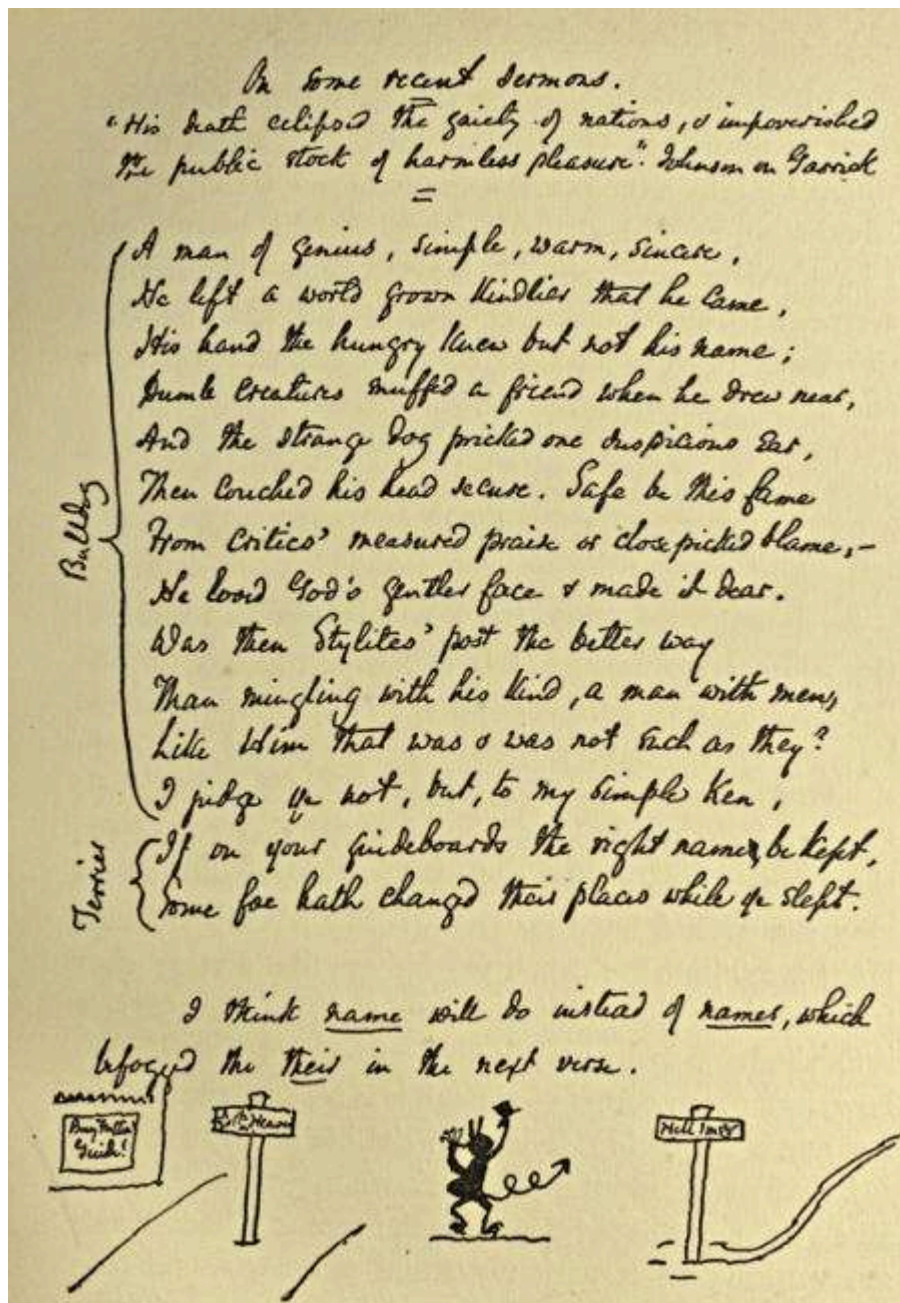 On some recent sermons.
"His death eclipsed the gaiety of nations, & impoverished
the public stock of harmless pleasure". Johnson on Garrick
A man of genius, simple, warm, sincere,
He left a world grown kindlier that he came,
His hand the hungry knew but not his name;
Dumb creatures snuffed a friend when he drew near,
And the strange dog pricked one suspicious ear,
Then couched his head secure. Safe be his fame
From critics' measured praise or close picked blame,—
He loved God's gentler face & made it dear.
Was then Stylites' post the better way
Than mingling with his kind, a man with men,
Like Him that was & was not such as they?
I judge ye not, but, to my simple ken,
If on your guideboards the right name be kept,
Some foe hath changed their places while ye slept.
Bulldog
Terrier
I think name will do instead of names, which
befogged the their in the next verse.
Buy
Guide!
Heaven
Hell